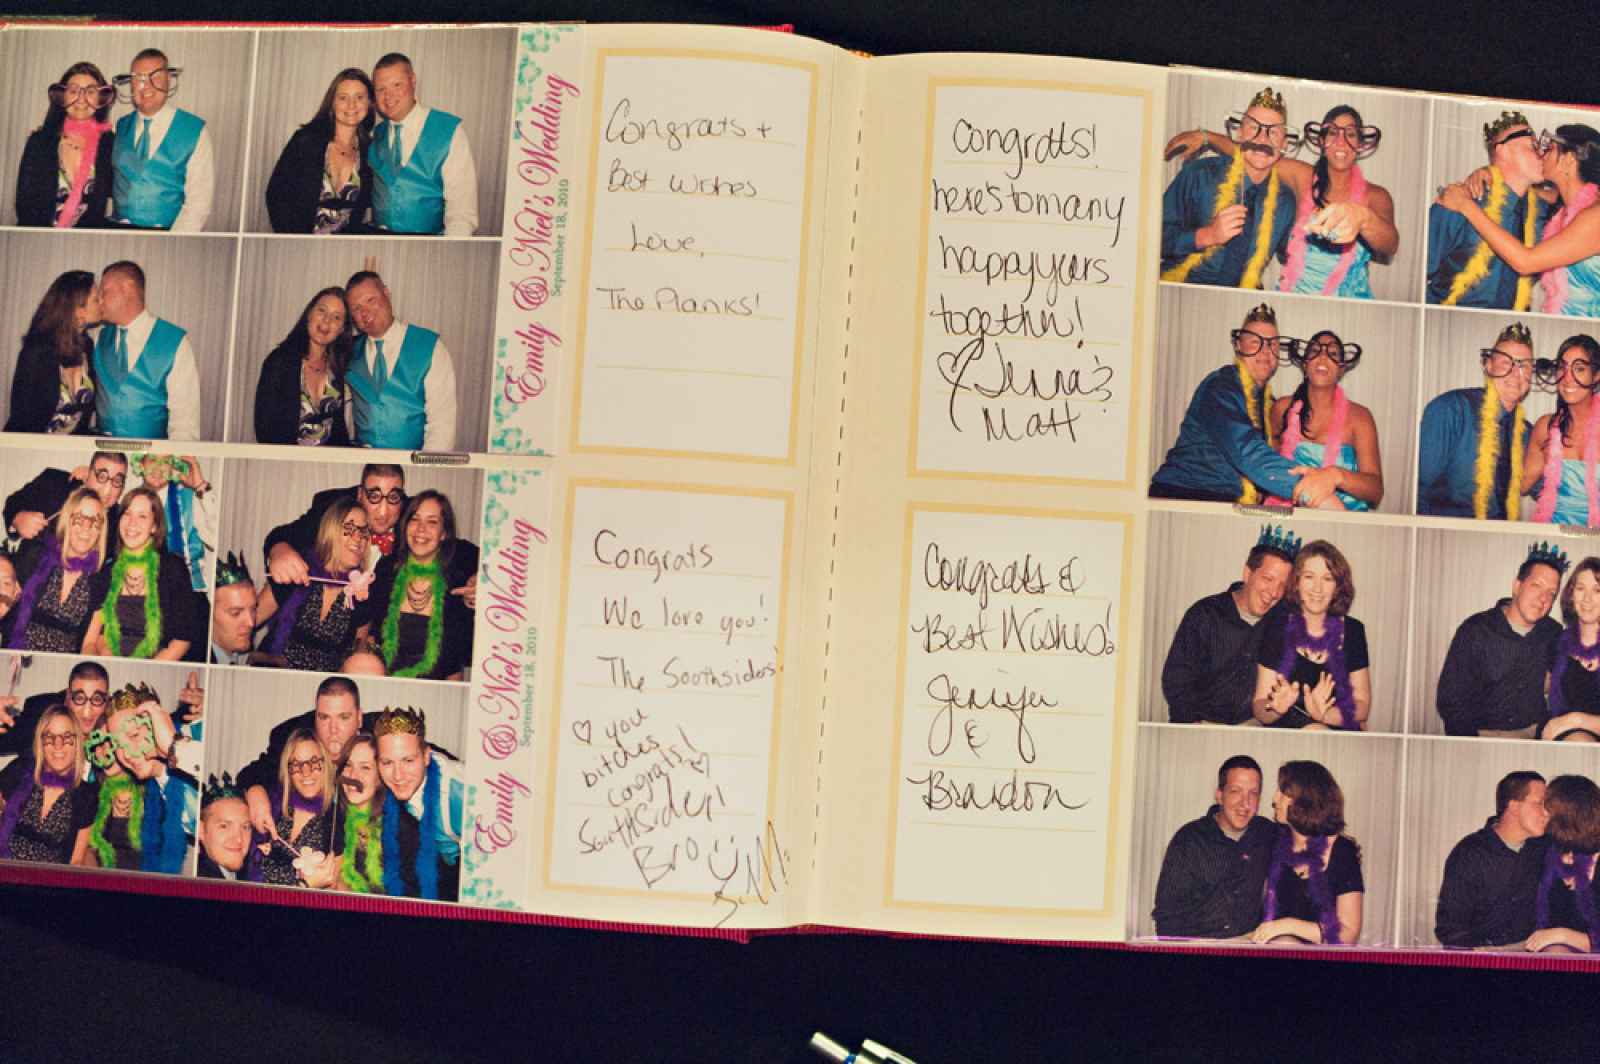 Emily & Niel's Wedding
September 18, 2010
Congrats +
Best Wishes
Love,
The Planks!
Emily & Niel's Wedding
September 18, 2010
Congrats
We love you!
The Soothsiders!
♡ you
bitches
congrats! ♡
SouthSider!
Bro
congrats!
here's to many
happy years
together!
♡ Jenna &
Matt
Congrats &
Best Wishes!
Jenifer
&
Brandon